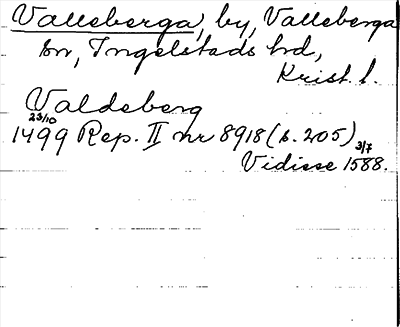 Valleberga, by, Valleberga
sn, Ingelstads hd,
Krist. l.
Valdeberg
23/10
1499 Rep. II nr 8918 (s. 205)
3/7
Vidisse 1588.